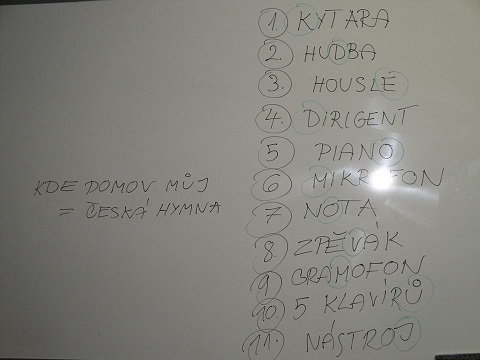 KDE DOMOV MŮJ
= ČESKÁ HYMNA
1. KYTARA
2. HUDBA
3. HOUSLE
4. DIRIGENT
5 PIANO
6 MIKROFON
7 NOTA
8. ZPĚVÁK
9 GRAMOFON
10. 5 KLAVÍRŮ
11. NÁSTROJ